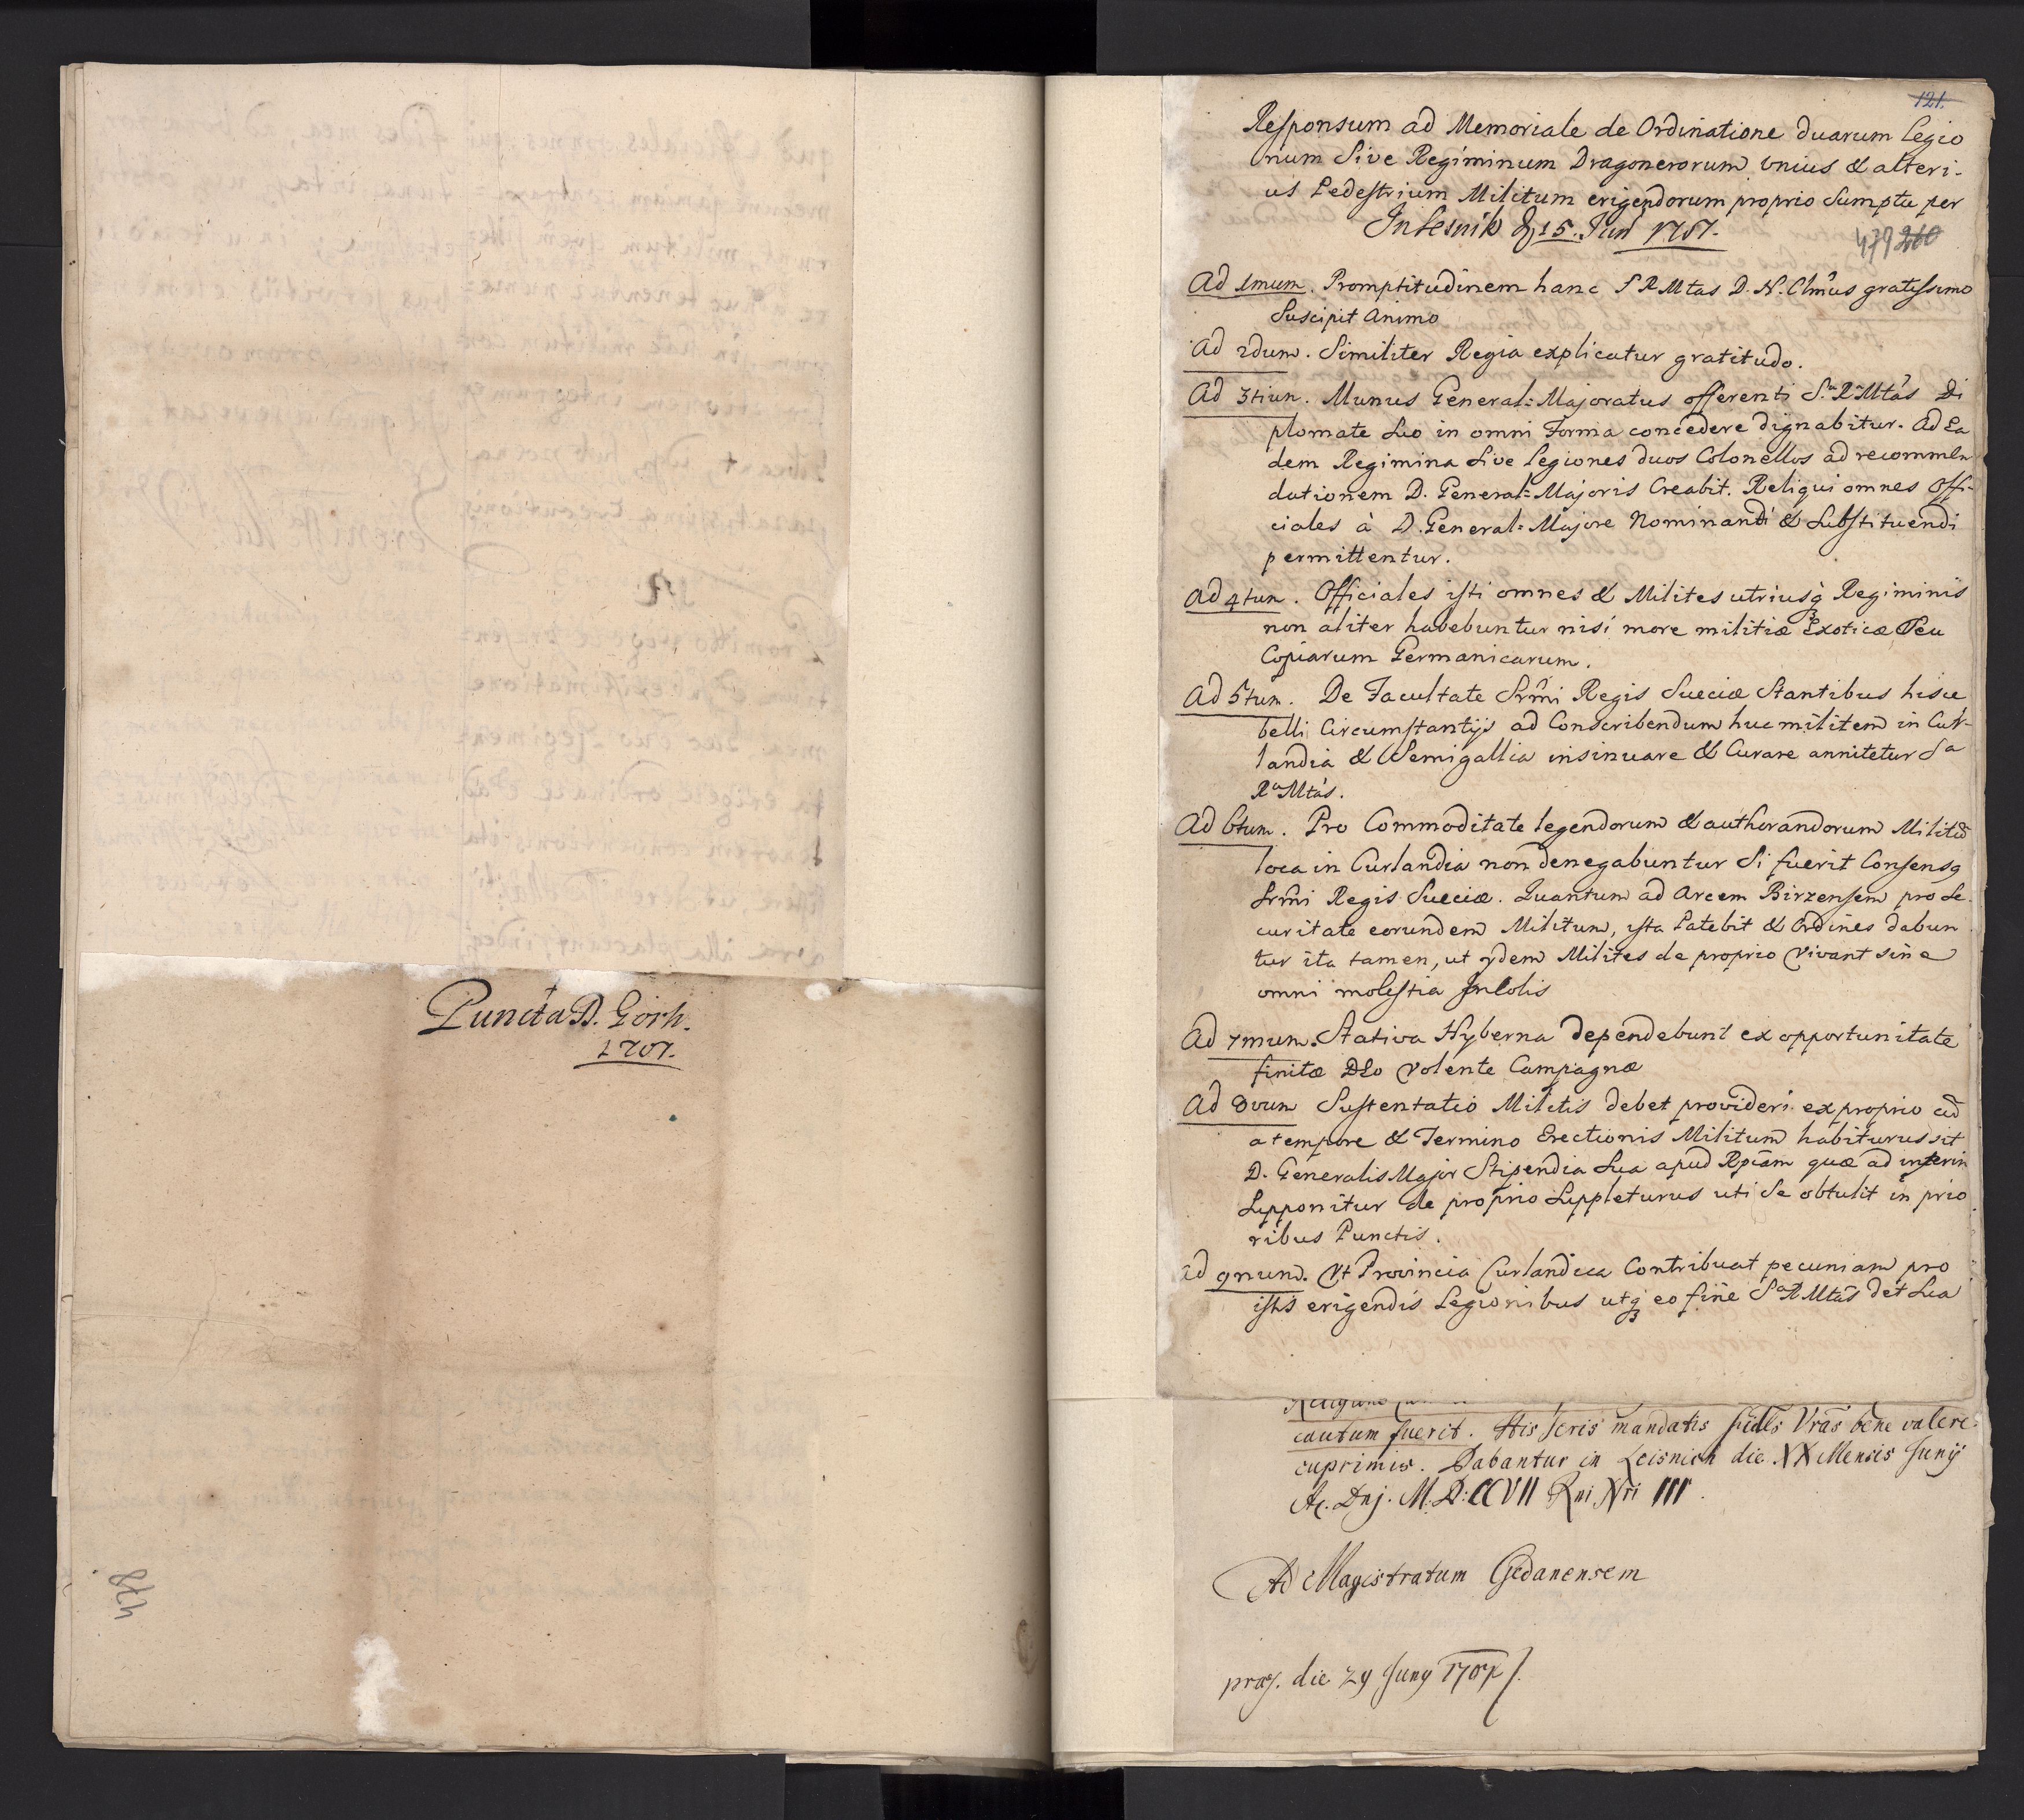 Puncta D. Görh.
1707.
478
121.
Responsum ad Memoriale de Ordinatione duarum legio
num Sive Regiminum Dragonerorum unius & alteri-
us Pedestrium Militum erigendorum proprio Sumptu per
In Lesnik 15. Jun 1707.
479 260
Ad 1mum. Promptitudinem hanc S R Mtas D. N. Clmus gratissimo
Suscipit Animo
Ad 2dum. Similiter Regia explicatur gratitudo.
Ad 3tiun. Munus General=Majoratus offerenti Sa Ra Mtas Di
plomate Suo in omni Forma concedere dignabitur. Ad Ea
dem Regimina Sive legiones duos Colonellos ad recommen
dationem D. General=Majoris Creabit. Reliqui omnes Offi-
ciales à D. General=Majore Nominandi & Substituendi
permittentur.
Ad 4tum. Officiales isti omnes & Milites utriusq Regiminis
non aliter habebuntur nisi more militiæ Exoticæ Seu
Copiarum Germanicarum.
Ad 5tum. De Facultate Srmi Regis Sueciæ Stantibus hisce
belli Circumstantijs ad Conscribendum huc militem in Cur-
landia & Semigallia insinuare & Curare annitetur Sa
Ra Mtas.
Ad 6tum. Pro Commoditate legendorum & authorandorum Militū
loca in Curlandia non denegabuntur Si fuerit Consensq
Srmi Regis Sueciæ. Quantum ad Arcem Birzensem pro Se
curitate eorundem Militum, ista Patebit & Ordines dabun
tur ita tamen, ut ydem Milites de proprio vivant sine
omni molestia Incolis
Ad 7mum. Stativa Hyberna dependebunt ex opportunitate
finitæ DEo volente Campagnæ
Ad 8vum Sustentatio Militis debet provideri ex proprio cū
a tempore & Termino Erectionis Militum habiturus sit
D. Generalis Major Stipendia Sua apud Rpcam quæ ad interim
Supponitur de proprio Suppleturus uti Se obtulit in prio
ribus Punctis.
Ad 9num. Ut Provincia Curlandica Contribuat pecuniam pro
istis erigendis Legionibus utq eo fine Sa R Mtas det Sua
cautum fuerit. His Seris mandatis fidts Vras bene valere
cuprimis. Dabantur in Leisnich die XX Mensis Junij
Ao. Dnj. M.D:CCVII Rni Nri III.
Ad Magistratum Gedanensem
præs. die 29 Juny 1707